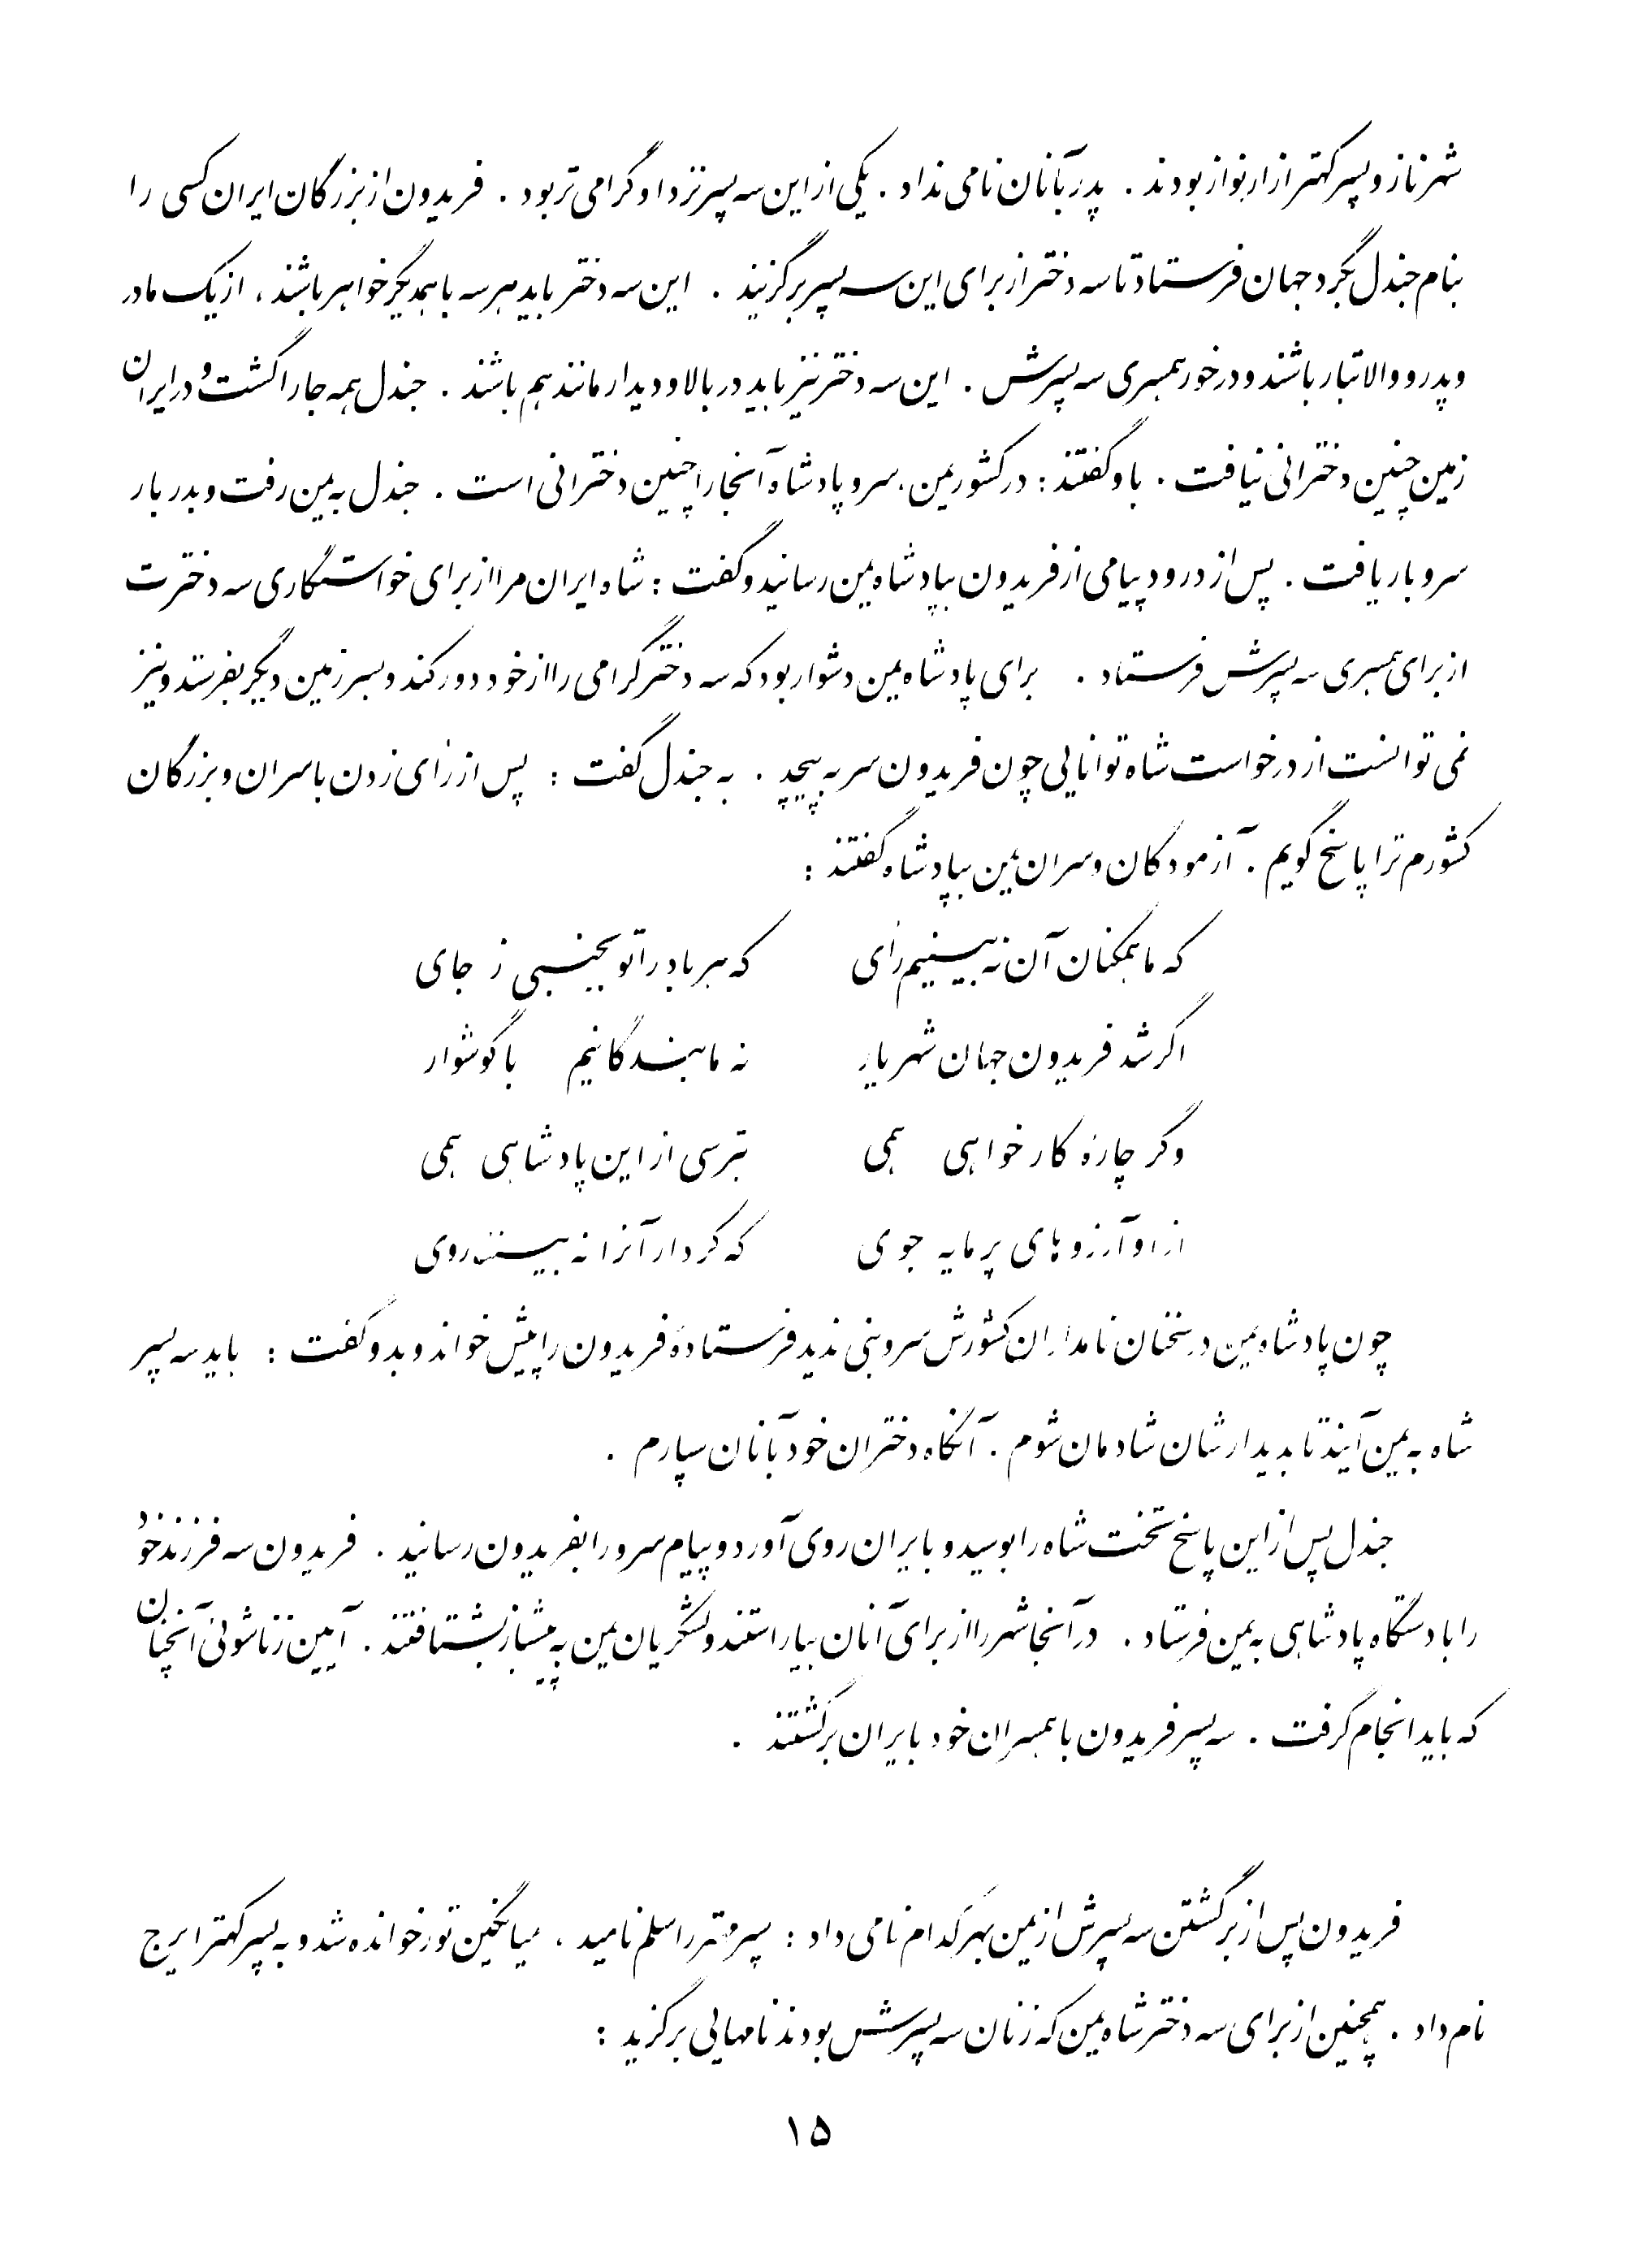 شهرناز و پسر کهتر از ارنواز بودند . پدر بآنان نامی نداد . یکی از این سه پسر نزد او گرامی تر بود . فریدون از بزرگان ایران کسی را
بنام جندل بگرد جهان فرستاد تا سه دختر از برای این سه پسر برگزیند . این سه دختر باید هر سه با همدیگر خواهر باشند ، از یک مادر
و پدر و والاتبار باشند و در خور همسری سه پسرش . این سه دختر نیز باید در بالا و دیدار مانند هم باشند . جندل همه جا را گشت و در ایران
زمین چنین دخترانی نیافت . باو گفتند : در کشور یمن، سرو پادشاه آنجا را چنین دخترانی است . جندل به یمن رفت و بدربار
سرو بار یافت . پس از درود پیامی از فریدون بپادشاه یمن رسانید و گفت : شاه ایران مرا از برای خواستگاری سه دخترت
از برای همسری سه پسرش فرستاد . برای پادشاه یمن دشوار بود که سه دختر گرامی را از خود دور کند و بسرزمین دیگر بفرستد و نیز
نمی توانست از درخواست شاه توانایی چون فریدون سر به پیچد . به جندل گفت : پس از رای زدن با سران و بزرگان
کشورم ترا پاسخ گویم . آزمودگان و سران یمن بپادشاه گفتند :
که ما همگنان آن نه بینیم رای که هر باد را تو بجنبی ز جای
اگر شد فریدون جهان شهریار نه ما بندگانیم با گوشوار
وگر چاره کار خواهی همی بترسی از این پادشاهی همی
از او آرزوهای پرمایه جوی که کردار آنرا نه بینند روی
چون پادشاه یمن در سخنان نامداران کشورش سر و بنی ندید فرستادهٔ فریدون را پیش خواند و بدو گفت : باید سه پسر
شاه به یمن آیند تا بدیدارشان شادمان شوم . آنگاه دختران خود بآنان سپارم .
جندل پس از این پاسخ تخت شاه را بوسید و بایران روی آورد و پیام سرو را بفریدون رسانید . فریدون سه فرزند خود
را با دستگاه پادشاهی به یمن فرستاد . در آنجا شهر را از برای آنان بیاراستند و لشکریان یمن به پیشباز بشتافتند . آیین زناشوئی آنچنان
که باید انجام گرفت . سه پسر فریدون با همسران خود بایران برگشتند .
فریدون پس از برگشتن سه پسرش از یمن بهر کدام نامی داد : پسر مهتر را سلم نامید ، میانگین تور خوانده شد و به پسر کهتر ایرج
نام داد . همچنین از برای سه دختر شاه یمن که زنان سه پسرش بودند نامهایی برگزید :
۱۵